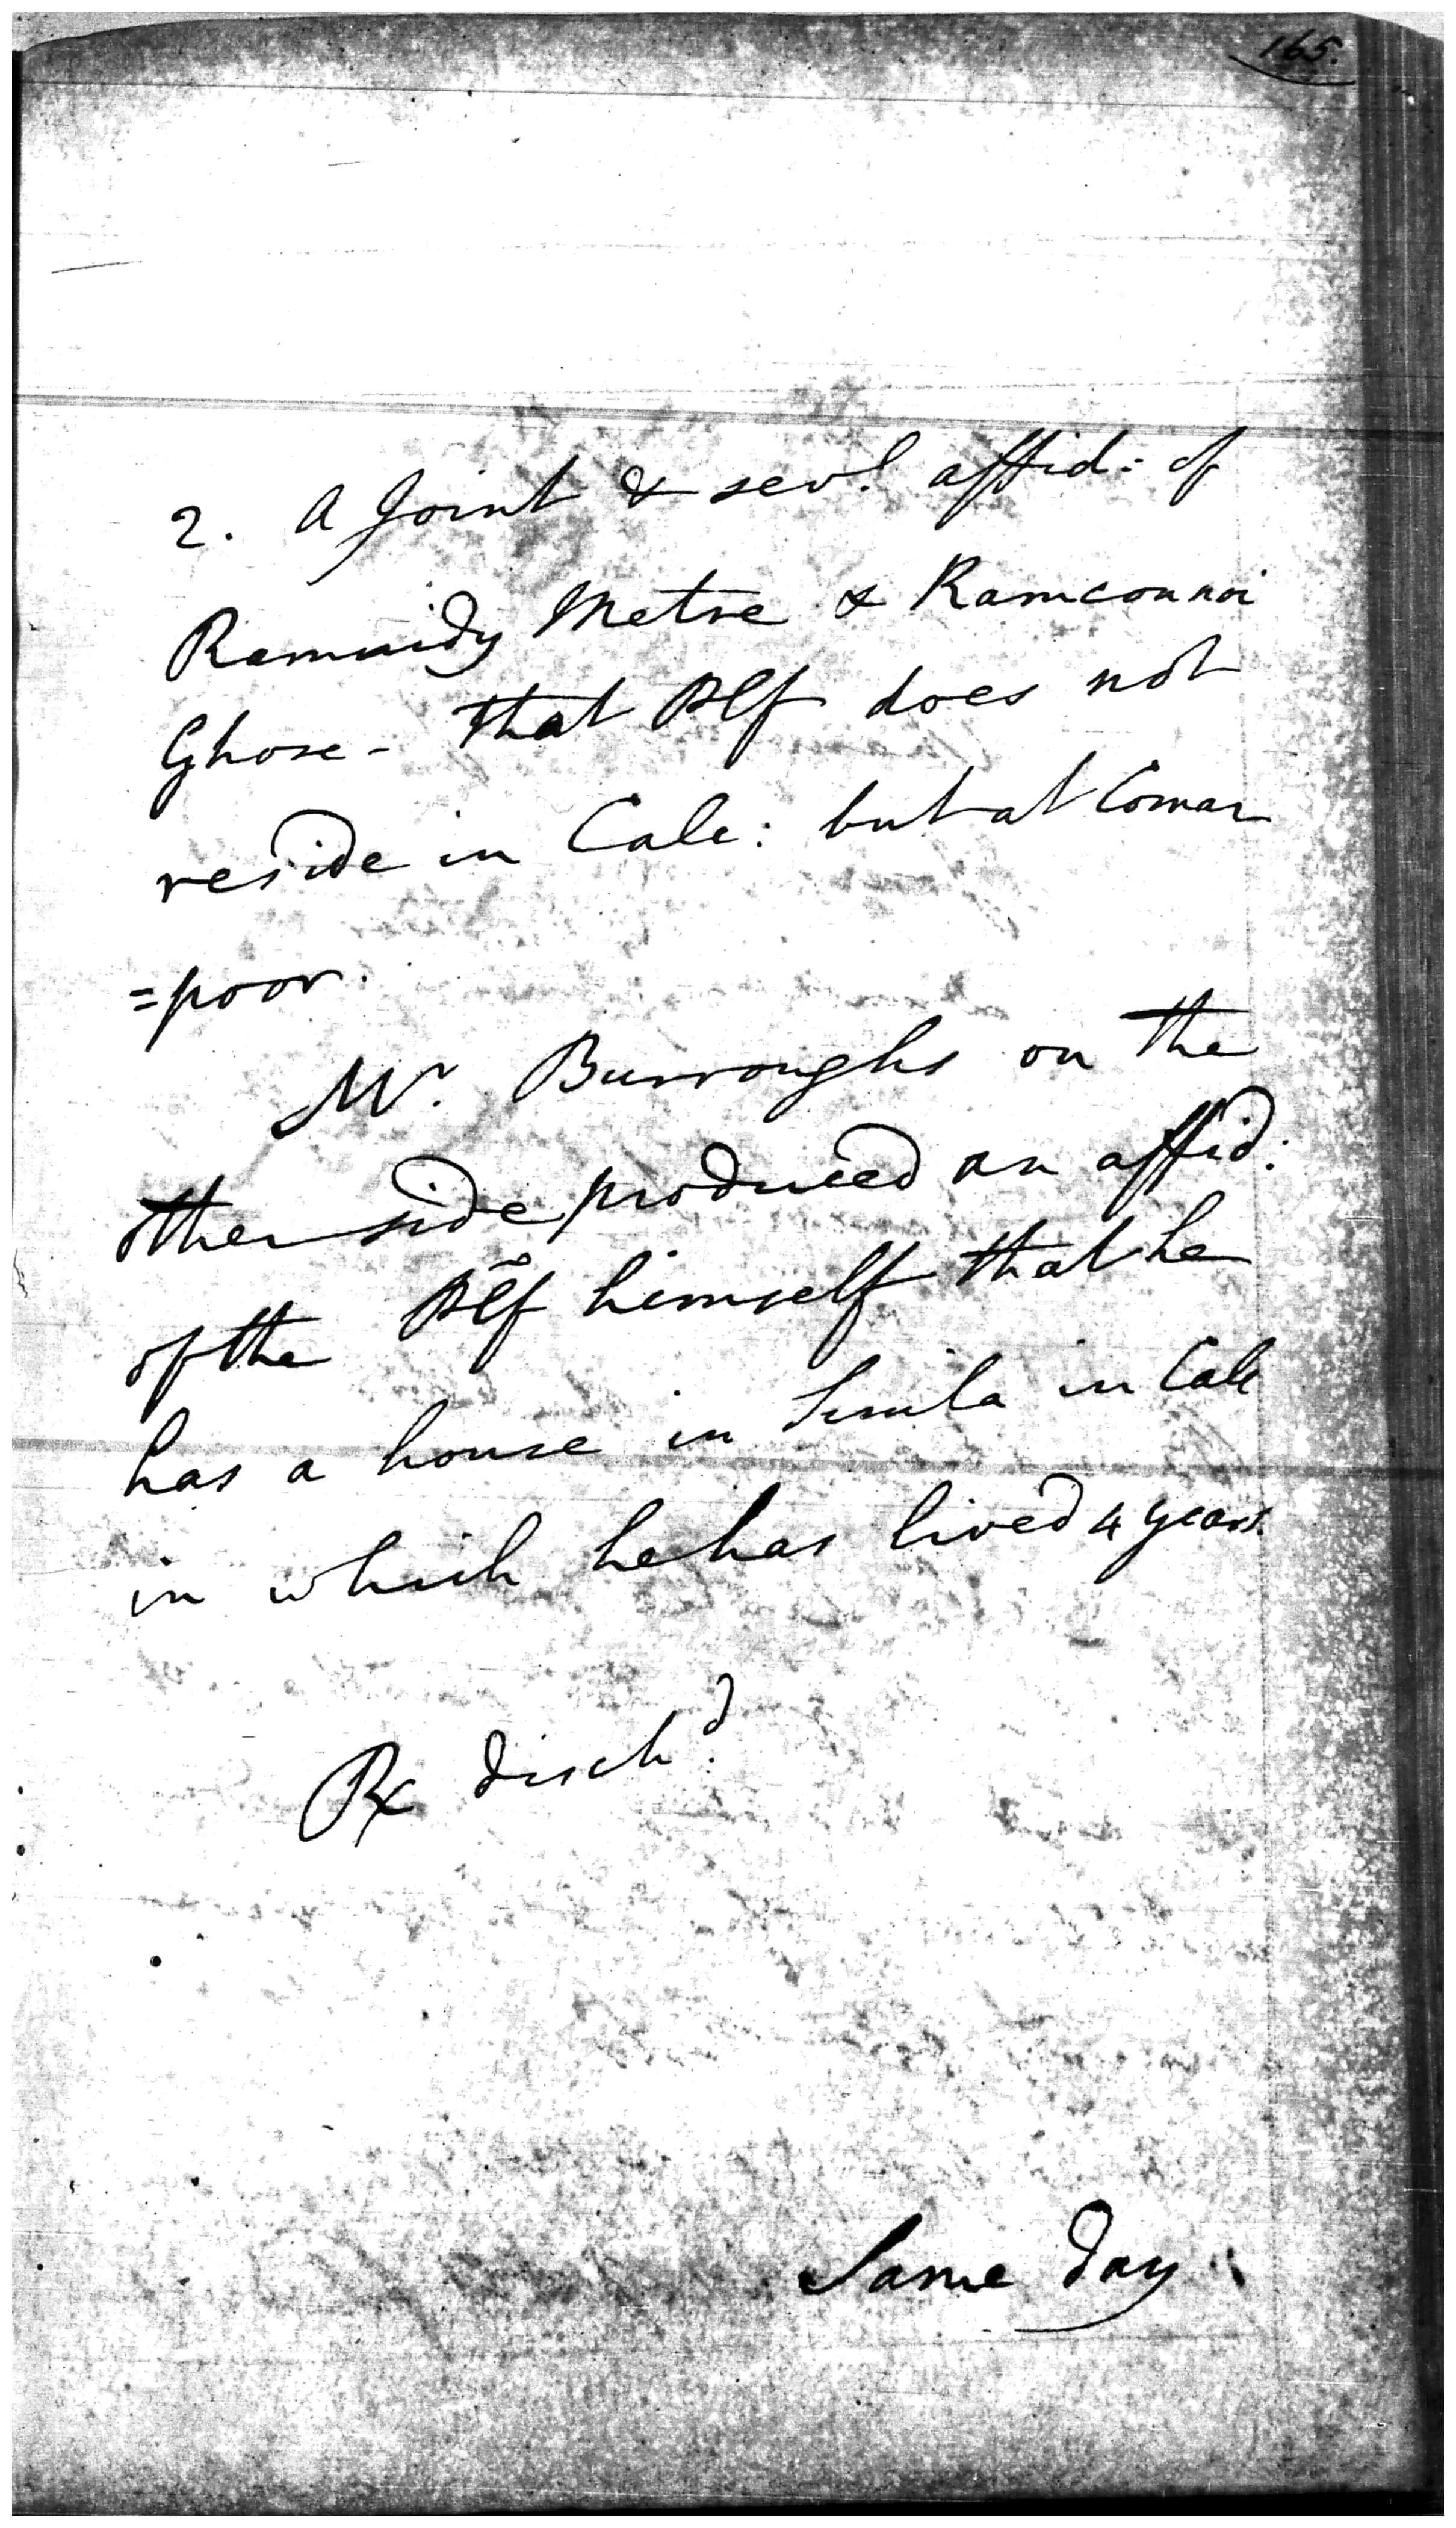 165.
2. A Joint & sevl. affid: of
Ramnidy Metre & Ramconnoi
Ghose - That Plf does not
reside in Calc: but at Comar
=poor.
Mr. Burroughs on the
other side produced an affid:
of the Plf himself that he
has a house in Simla in Calc
in which he has lived 4 years.
Rx disch.d
Same day